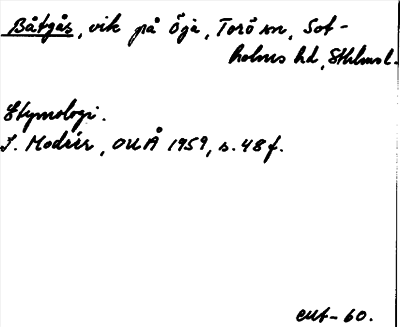 Båtgås, vik på Öja, Torö sn, Sot-
holms hd, Sthlms l.
Etymologi.
I. Modéer, OUÅ 1959, s. 48 f.
-60.